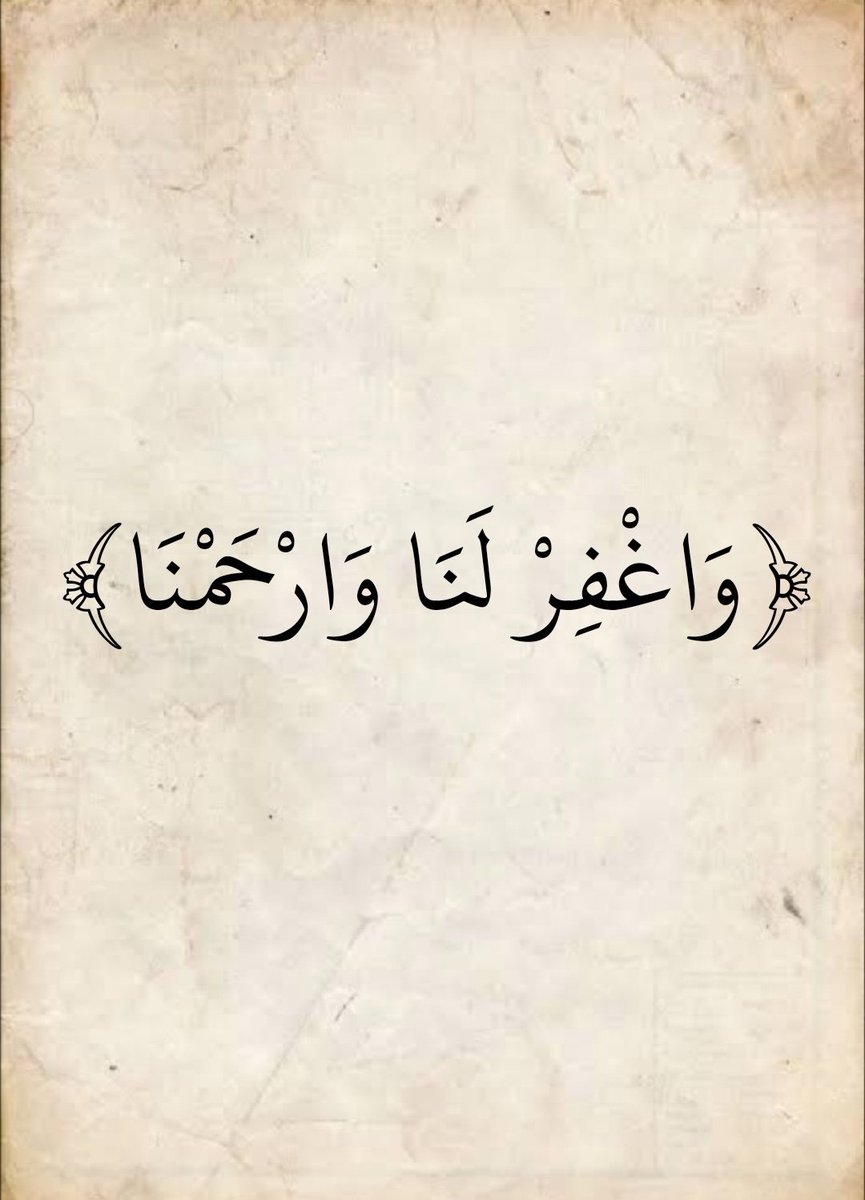 ﴿وَاغْفِرْ لَنَا وَارْحَمْنَا﴾